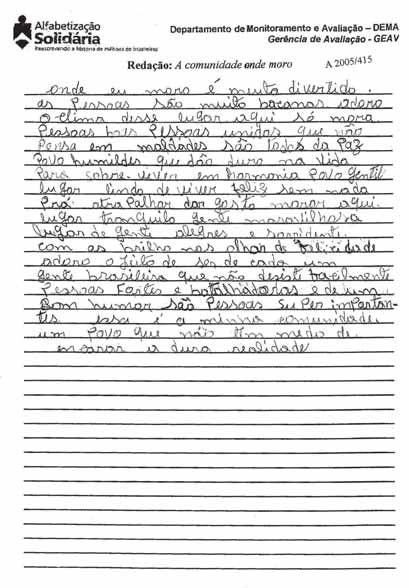 Alfabetização
Solidária
Reescrevendo a história de milhões de brasileiros
Departamento de Monitoramento e Avaliação – DEMA
Gerência de Avaliação - GEAV
Redação: A comunidade onde moro
A 2005/415
onde eu moro é muito divertido.
as Pessoas são muito bacanas adoro
o clima desse lugar aqui só mora
Pessoas boas Pessoas unidas que não
Pensa em maldades são todos da Paz
Povo humildes que dão duro na vida
Para sobre-viver em harmonia Povo gentil
lugar lindo de viver feliz sem nada
Pra atrapalhar dar gosto morar aqui.
lugar tranquilo gente maravilhosa
lugar de gente alegres e sorridente.
com as brilho nas olhos de felicidade
adoro o jeito de ser de cada um
gente brasileira que não desisti facilmente
Pessoas Fortes e batalhadoras e de um
Bom humor são Pessoas super importan-
tes essa é a minha comunidade.
um Povo que não tem medo de.
encarar a dura realidade